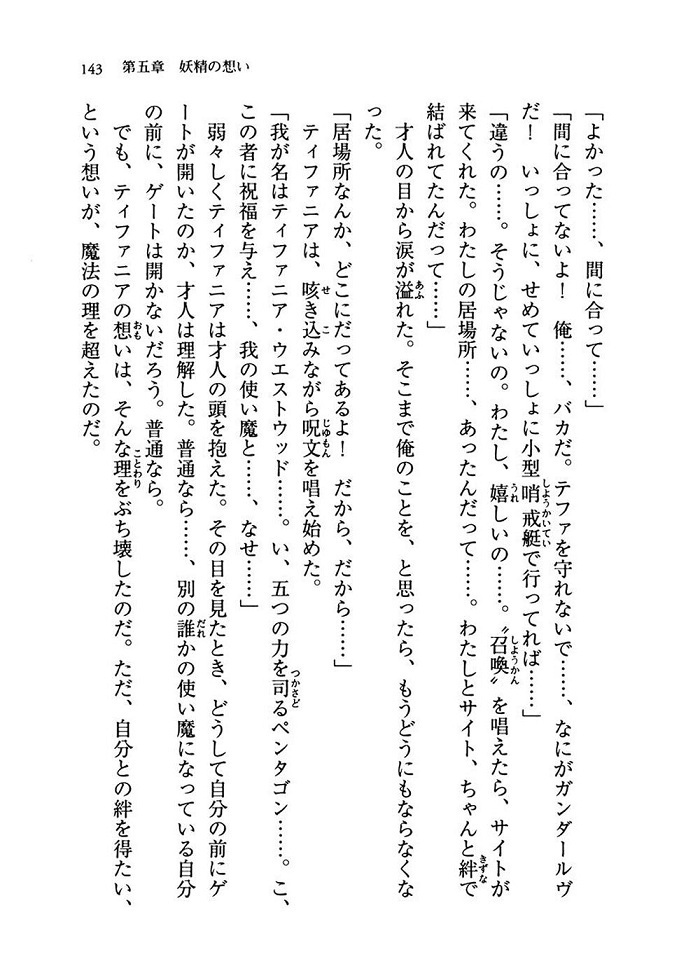 143　第五章　妖精の想い
「よかった……、間に合って……」
「間に合ってないよ！　俺……、バカだ。テファを守れないで……、なにがガンダールヴ
だ！　いっしょに、せめていっしょに小型哨戒艇で行ってれば……」
「違うの……。そうじゃないの。わたし、嬉しいの……。〝召喚〟を唱えたら、サイトが
来てくれた。わたしの居場所……、あったんだって……。わたしとサイト、ちゃんと絆で
結ばれてたんだって……」
　才人の目から涙が溢れた。そこまで俺のことを、と思ったら、もうどうにもならなくな
った。
「居場所なんか、どこにだってあるよ！　だから、だから……」
　ティファニアは、咳き込みながら呪文を唱え始めた。
「我が名はティファニア・ウエストウッド……。い、五つの力を司るペンタゴン……。こ、
この者に祝福を与え……、我の使い魔と……、なせ……」
　弱々しくティファニアは才人の頭を抱えた。その目を見たとき、どうして自分の前にゲ
ートが開いたのか、才人は理解した。普通なら……、別の誰かの使い魔になっている自分
の前に、ゲートは開かないだろう。普通なら。
　でも、ティファニアの想いは、そんな理をぶち壊したのだ。ただ、自分との絆を得たい、
という想いが、魔法の理を超えたのだ。